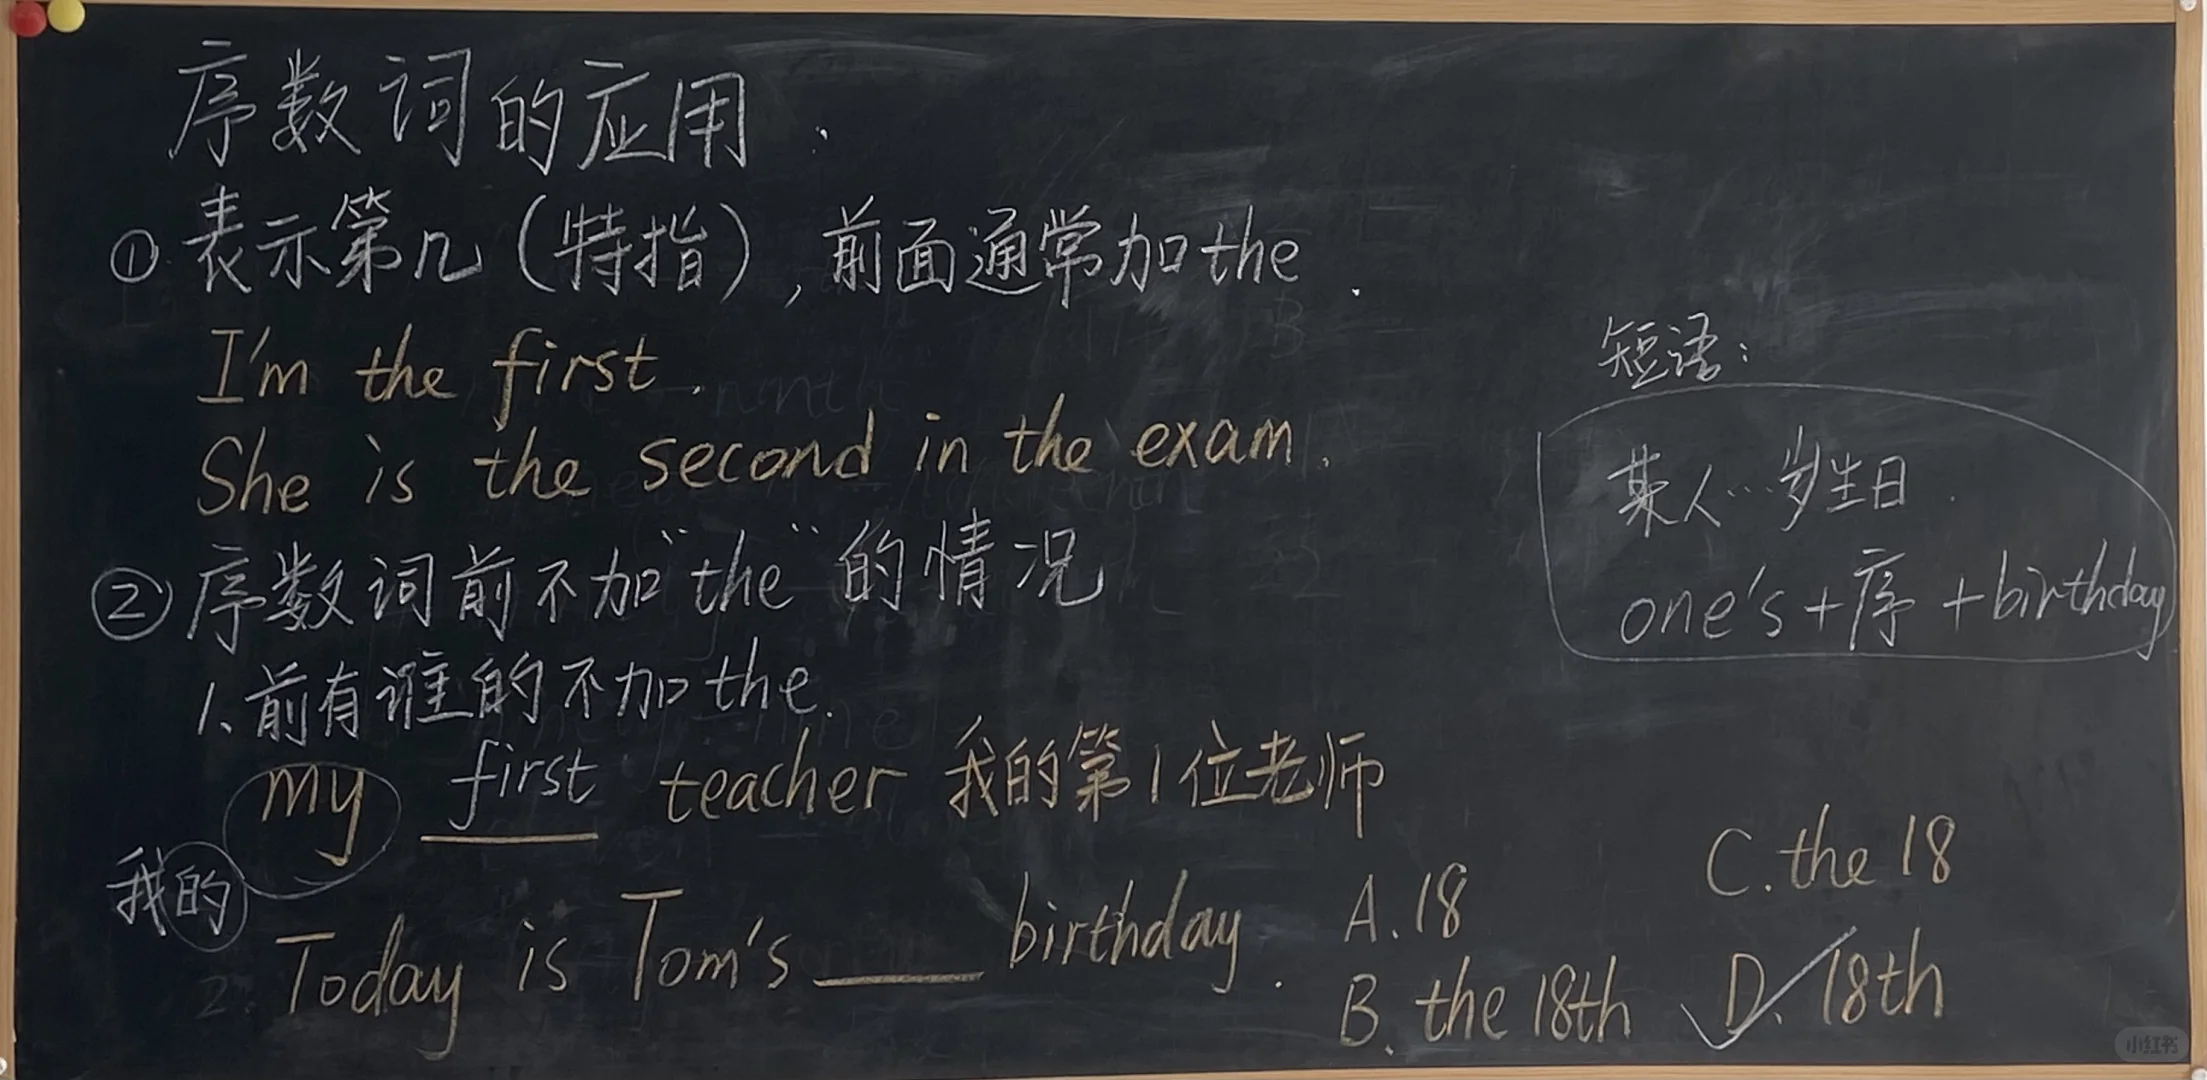 序数词的应用:
① 表示第几(特指),前面通常加the.
I'm the first.
She is the second in the exam.
② 序数词前不加"the"的情况
1.前有谁的不加the.
my first teacher 我的第1位老师
我的
Today is Tom's ____ birthday.
A.18
B. the 18th
C. the 18
D. 18th
短语:
某人…岁生日.
one's+序+birthday
小红书